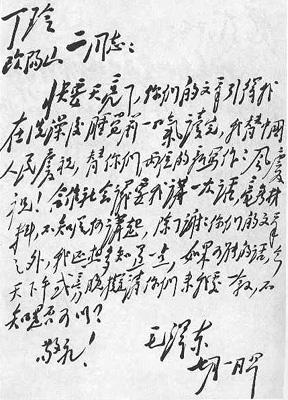 丁玲
欧阳山 二同志：
快要天亮了，你们的文章引得我
在洗澡后睡覺前一口氣读完，我替中國
人民慶祝，替你们两位的新写作作风慶
祝！合作社会議要我講一次话，毫無材
料，不知從何講起，除了謝谢你们的文章
之外，我还想多知道一点，如果可能的话，今
天下午或傍晚拟请你们来我处一叙，不
知是否可以？
敬礼！
毛泽东
七月一日早